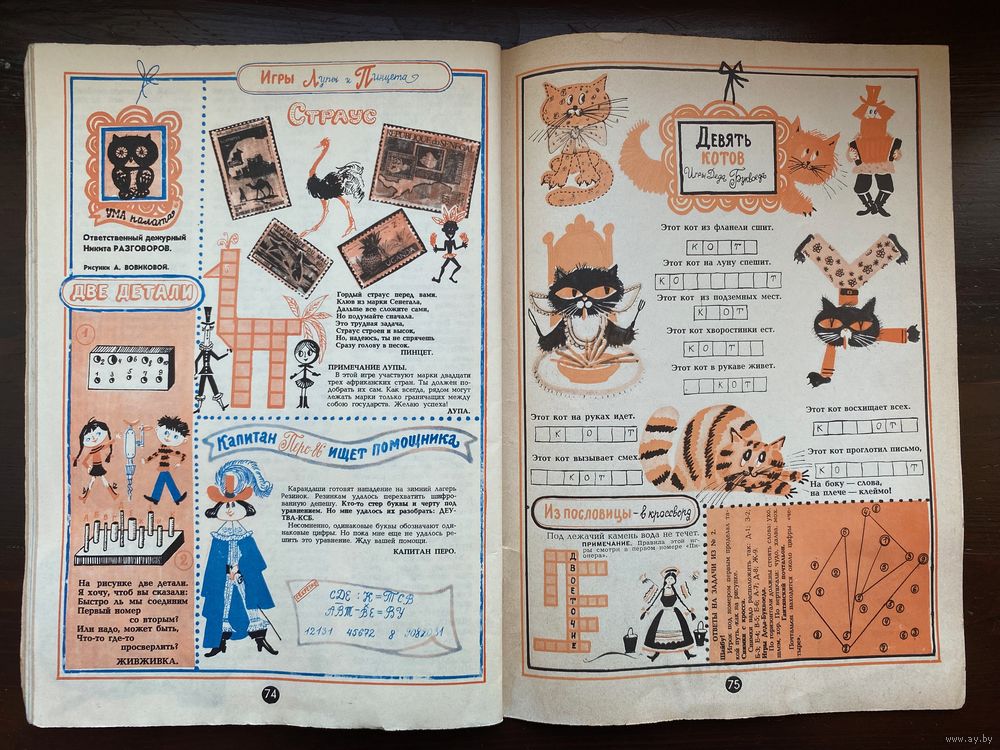 Игры Лупы и Пинцета
Страус
УМА палата
Ответственный дежурный
Никита РАЗГОВОРОВ.
Рисунки А. ВОВИКОВОЙ.
ДВЕ ДЕТАЛИ
1
2
На рисунке две детали.
Я хочу, чтоб вы сказали:
Быстро ль мы соединим
Первый номер
со вторым?
Или надо, может быть,
Что-то где-то
просверлить?
ЖИВЖИВКА.
Гордый страус перед вами.
Клюв из марки Сенегала,
Дальше все сложите сами,
Но подумайте сначала.
Это трудная задача,
Страус строен и высок,
Но, надеюсь, ты не спрячешь
Сразу голову в песок.
ПИНЦЕТ.
ПРИМЕЧАНИЕ ЛУПЫ.
В этой игре участвуют марки двадцати
трех африканских стран. Ты должен по-
добрать их сам. Как всегда, рядом могут
лежать марки только граничащих между
собою государств. Желаю успеха!
ЛУПА.
Капитан Перо-86 ищет помощника
Карандаши готовят нападение на зимний лагерь
Резинок. Резинкам удалось перехватить шифро-
ванную депешу. Кто-то стер буквы и черту под
уравнением. Но мне удалось их разобрать: ДЕУ-
ТВА-КСБ.
Несомненно, одинаковые буквы обозначают оди-
наковые цифры. Но пока мне еще не удалось ре-
шить это уравнение. Жду вашей помощи.
КАПИТАН ПЕРО.
СДЕ : К = ТСВ
АВТ - ВЕ = ВУ
12131 45672 8
74
Девять
котов
Игры Деда Буквоеда
Этот кот из фланели сшит.
КОТ
Этот кот на луну спешит.
КОТ
Этот кот из подземных мест.
КОТ
Этот кот хворостинки ест.
КОТ
Этот кот в рукаве живет.
КОТ
Этот кот на руках идет.
КОТ
Этот кот вызывает смех.
КОТ
Этот кот восхищает всех.
КОТ
Этот кот проглотил письмо,
КОТ
На боку — слова,
на плече — клеймо!
Из пословицы - в кроссворд
Под лежачий камень вода не течет.
ПРИМЕЧАНИЕ. Правила этой иг-
ры смотри в первом номере «Пи-
онера».
ДВОЕТОЧИЕ
ОТВЕТЫ НА ЗАДАЧИ ИЗ № 2.
75
www.ay.by